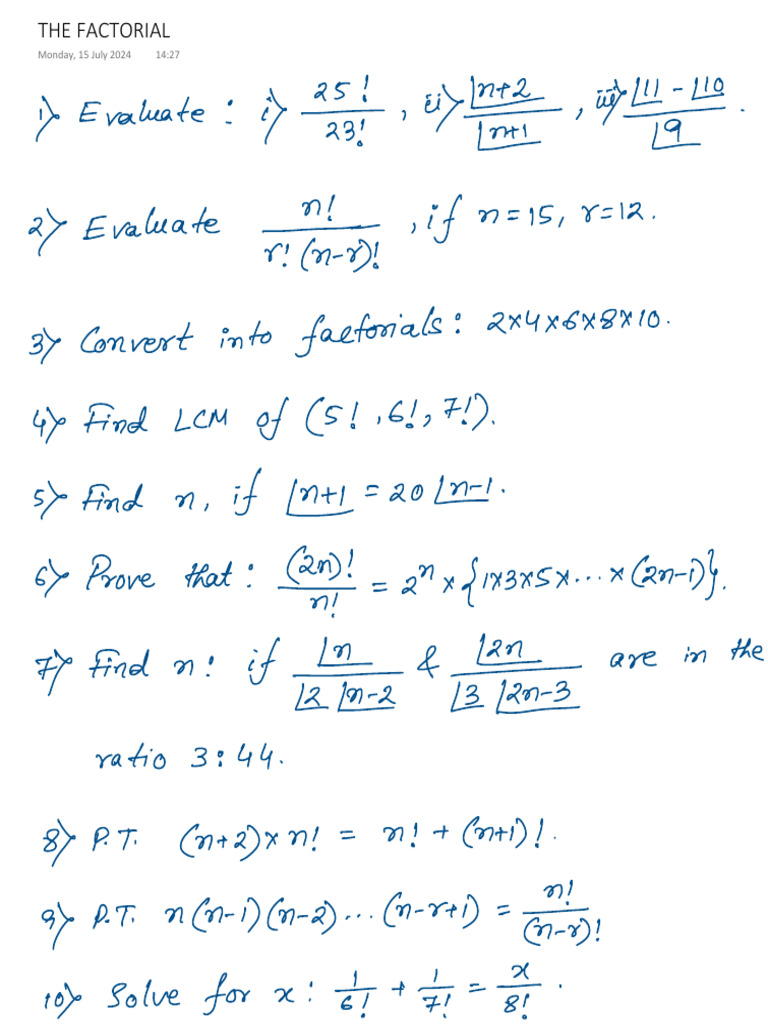 THE FACTORIAL
Monday, 15 July 2024 14:27
1) Evaluate : i) 25! / 23! , ii) ⌊n+2 / ⌊n+1 , iii) ⌊11 - ⌊10 / ⌊9 .
2) Evaluate n! / r! (n-r)! , if n=15, r=12.
3) Convert into factorials: 2×4×6×8×10.
4) Find LCM of (5!, 6!, 7!).
5) Find n, if ⌊n+1 = 20 ⌊n-1.
6) Prove that: (2n)! / n! = 2ⁿ × {1×3×5×...×(2n-1)}.
7) Find n: if ⌊n / ⌊2 ⌊n-2 & ⌊2n / ⌊3 ⌊2n-3 are in the
ratio 3:44.
8) P.T. (n+2)×n! = n! + (n+1)!.
9) P.T. n(n-1)(n-2)...(n-r+1) = n! / (n-r)!
10) Solve for x: 1/6! + 1/7! = x/8! .